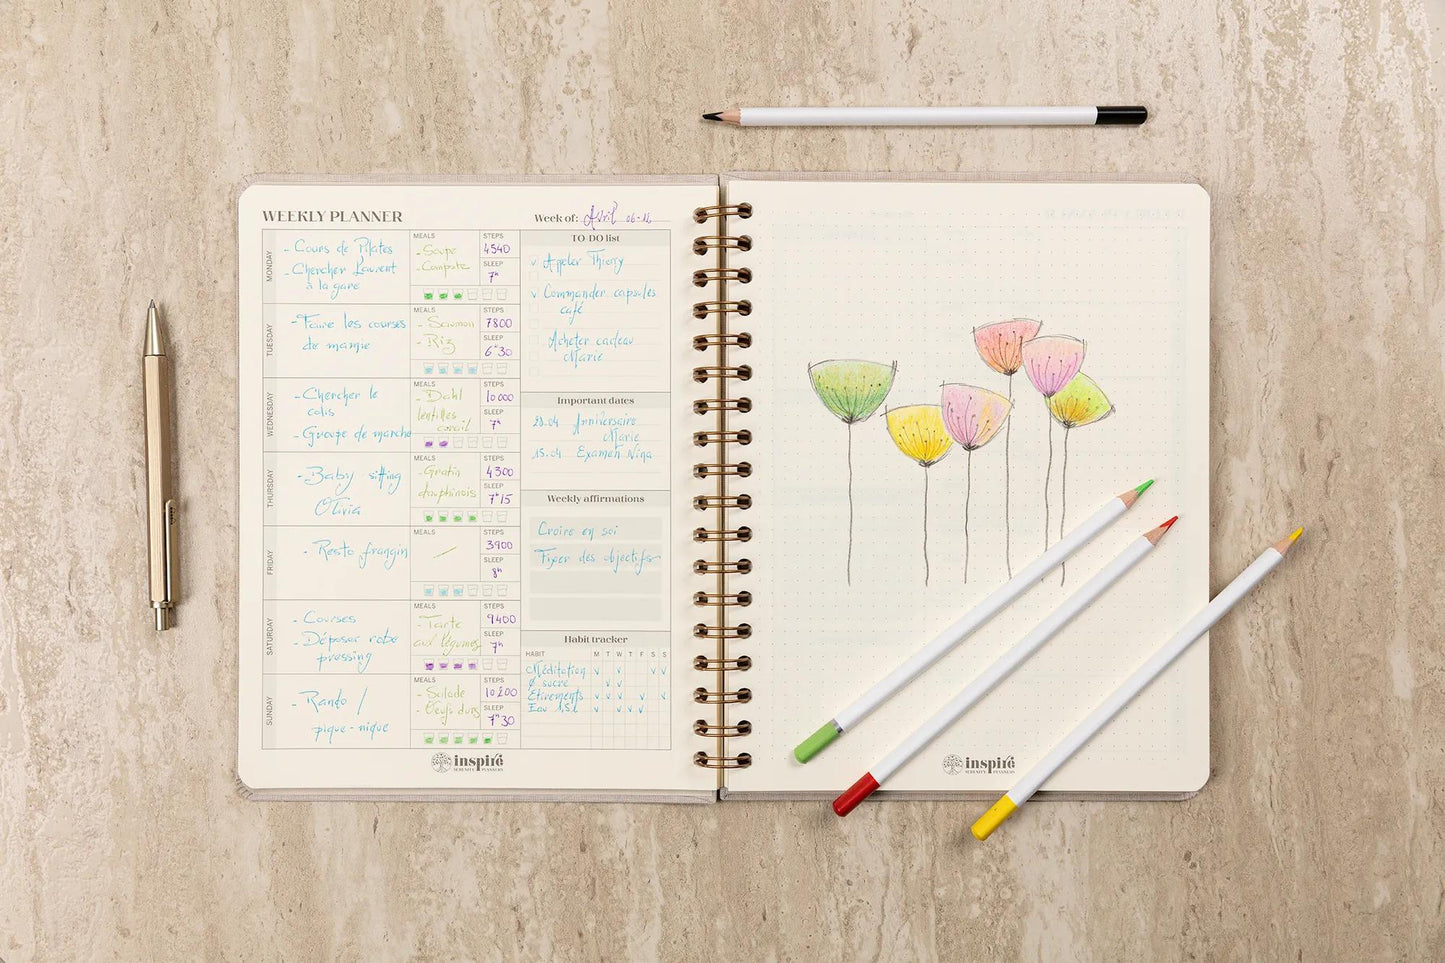 WEEKLY PLANNER
Week of: Avril 06-12
MONDAY
- Cours de Pilates
- Chercher Laurent
à la gare
MEALS
- Soupe
- Compote
STEPS
4540
SLEEP
7h
TUESDAY
- Faire les courses
de mamie
MEALS
- Saumon
- Riz
STEPS
7800
SLEEP
6h30
WEDNESDAY
- Chercher le
colis
- Groupe de marche
MEALS
- Dahl
lentilles
corail
STEPS
10 000
SLEEP
7h
THURSDAY
- Baby-sitting
Olivia
MEALS
- Gratin
dauphinois
STEPS
4300
SLEEP
7h15
FRIDAY
- Resto frangin
MEALS
STEPS
3900
SLEEP
8h
SATURDAY
- Courses
- Déposer robe
pressing
MEALS
- Tarte
aux légumes
STEPS
9400
SLEEP
7h
SUNDAY
- Rando /
pique-nique
MEALS
- Salade
- Oeufs durs
STEPS
10200
SLEEP
7h30
TO-DO list
v Appeler Thierry
v Commander capsules
café
Acheter cadeau
Marie
Important dates
Anniversaire
Marie
15.04 Examen Nina
Weekly affirmations
Croire en soi
Fixer des objectifs
Habit tracker
HABIT M T W T F S S
Méditation v v v v
Ø sucre v v
Etirements v v v v v
Eau 1,5l v v v v
inspire
SERENITY PLANNERS
inspire
SERENITY PLANNERS